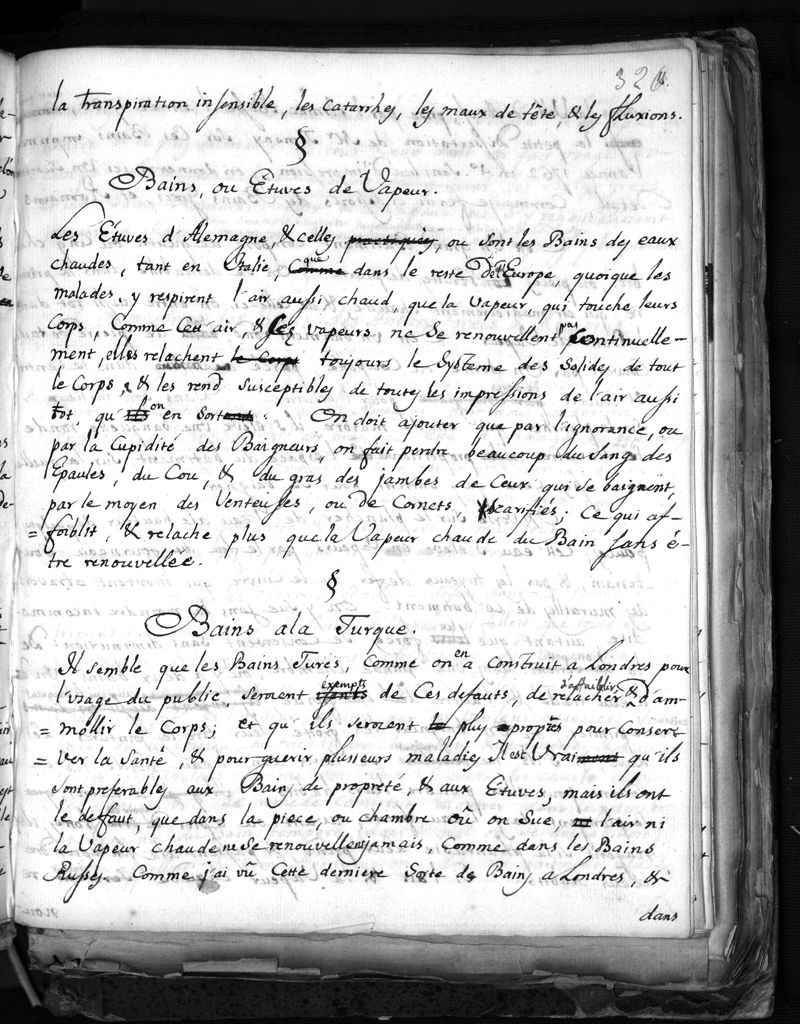 326.
la transpiration insensible, les catarrhes, les maux de tête, & les fluxions.
§
Bains, ou Etuves de Vapeur.
Les Etuves d'Alemagne, & celles practiquées, ou sont les Bains des eaux
chaudes, tant en Italie, Comme que dans le reste de l'Europe, quoique les
malades, y respirent l'air aussi chaud, que la vapeur, qui touche leurs
Corps, Comme Cet air, & Ces vapeurs, ne se renouvellent pas Continuelle-
ment, elles relachent le Corps toujours le Systeme des Solides de tout
le Corps, & les rend susceptibles de toutes les impressions de l'air aussi
tot, qu'ils on en sortant. On doit ajouter que par l'ignorance, ou
par la Cupidité des Baigneurs, on fait perdre beaucoup du Sang des
Epaules, du Cou, & du gras des jambes de Ceux qui se baignent,
par le moyen des Venteuses, ou de Cornets, scarifiés; Ce qui af-
= foiblit, & relache plus que la Vapeur chaude du Bain sans ê-
tre renouvellée.
§
Bains a la Turque.
Il semble que les Bains Turcs, Comme on en a Construit a Londres pour
l'usage du public, seroient exempts de Ces defauts, de relacher d'affaiblir, & d'am-
= mollir le Corps; et qu'ils seroient le plus propres pour Conser-
= ver la Santé, & pour guerir plusieurs maladies Il est Vraiment qu'ils
sont preferables aux Bains de propreté, & aux Etuves, mais ils ont
le deffaut, que dans la piece, ou chambre où on Sue, l'air ni
la Vapeur chaude ne se renouvellent jamais, Comme dans les Bains
Russes. Comme j'ai vû Cette derniere Sorte de Bains a Londres, &
dans